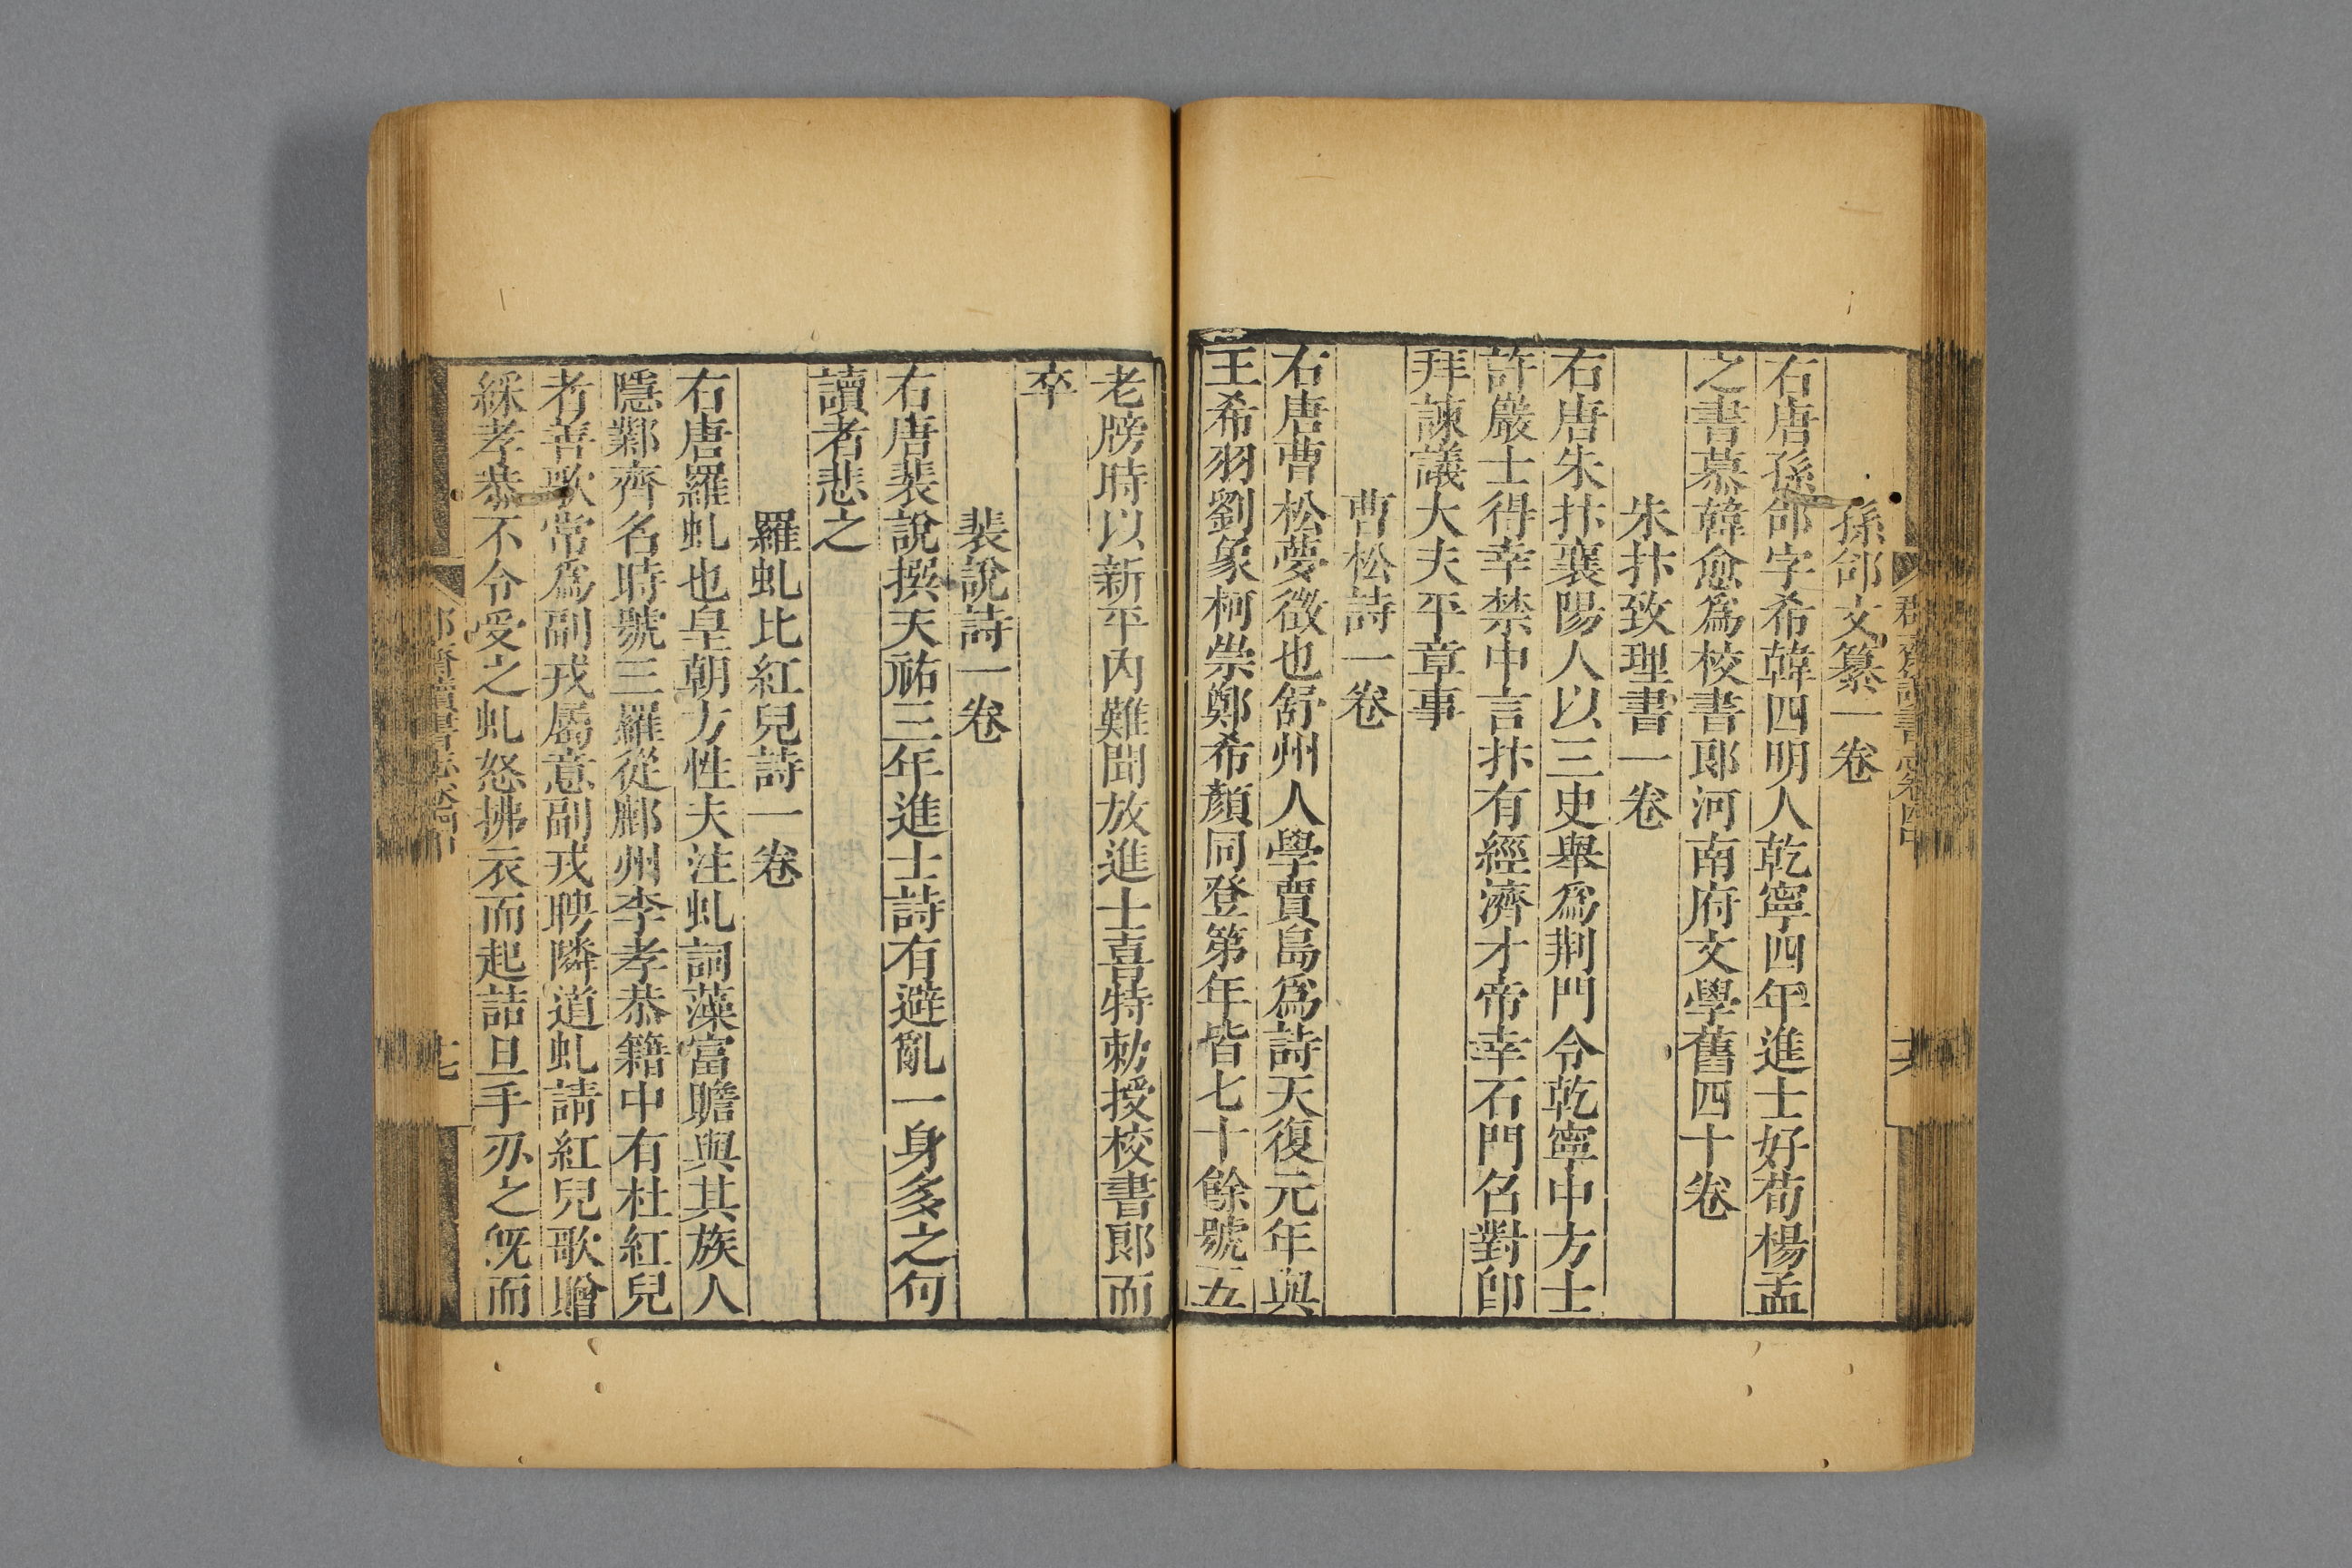 孫郃文纂一卷
右唐孫郃字希韓四明人乾寧四年進士好荀楊孟
之書慕韓愈爲校書郞河南府文學舊四十卷
朱抃致理書一卷
右唐朱抃襄陽人以三史舉爲荆門令乾寧中方士
許嚴士得幸禁中言抃有經濟才帝幸石門召對卽
拜諫議大夫平章事
曹松詩一卷
右唐曹松夢徵也舒州人學賈島爲詩天復元年與
王希羽劉象柯崇鄭希顏同登第年皆七十餘號五
老牓時以新平內難聞放進士喜特勅授校書郞而
卒
裴說詩一卷
右唐裴說撰天祐三年進士詩有避亂一身多之句
讀者悲之
羅虬比紅兒詩一卷
右唐羅虬也皇朝方性夫注虬詞藻富贍與其族人
隱鄴齊名時號三羅從鄜州李孝恭籍中有杜紅兒
者善歌常爲副戎屬意副戎聘隣道虬請紅兒歌贈
綵孝恭不令受之虬怒拂衣而起詰旦手刃之旣而
十七